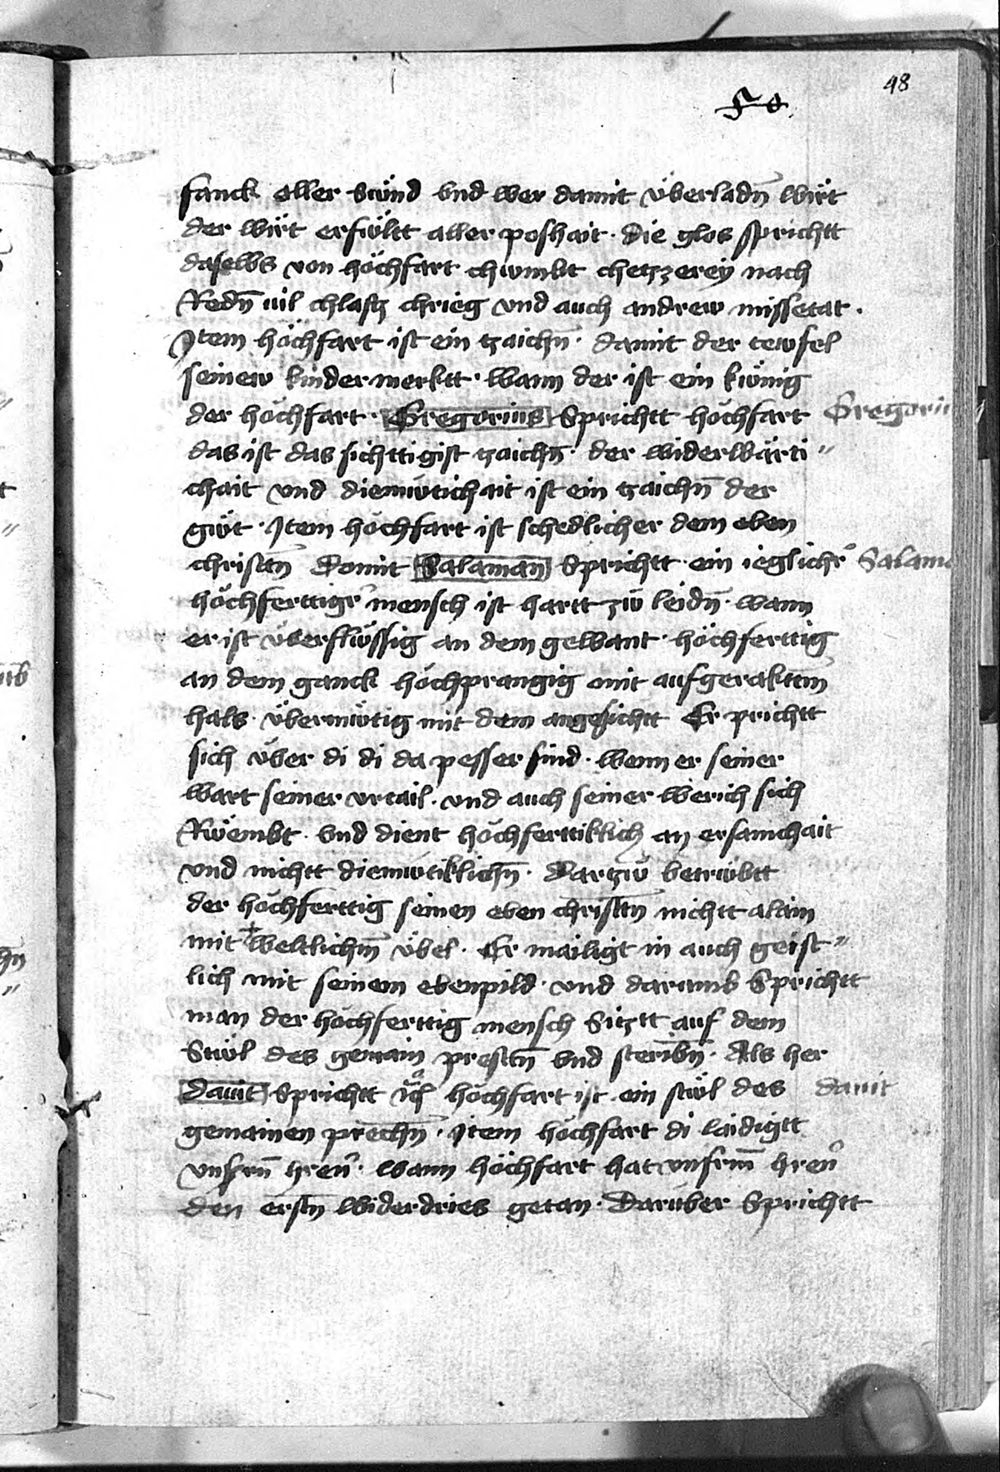 48
fanck aller sünd vnd wer damit überladn̄ wirt
der wirt erfültt aller poshait · die glos sprichtt
daselbs von höchfart chumbt chetzzerey nach
Redn̄ vil chlastz chrieg vnd auch andrew missetat ·
Jtem höchfart ist ein tzaichn̄ · damit der tewfel
seinew kinder merktt · wann der ist ein künig
der höchfart · Gregorius Sprichtt höchfart Gregoriu
das ist das sichttigist tzaichn̄ · der widerwärti〃
chait vnd diemütichait ist ein tzaichn̄ der
güt · Jtem höchfart ist schedlicher dem eben
christn̄ Domit Salaman Sprichtt · ein ieglichr̄ Salama
höchferttigr̄ mensch ist hartt zw̄ leidn̄ · wann
er ist überflüssig an dem gewant · höchferttig
an dem ganck höchprangig mit aufgeraktm̄
hals · übermütig mit dem angesichtt Er prichtt
sich über di di da pesser sind · wenn er seiner
wart seiner vrtail · vnd auch seiner werich sich
Rüembt · vnd dient höchferttiklich an ersamchait
vnd nichtt diemütiklichn̄ · Dartzü betrübtt
der höchferttig seinen eben christn̄ nichtt alain
mit weltlichm̄ übel · Er mailigt in auch geist〃
lich mit seinem ebenpild · vnd darumb Sprichtt
man der höchferttig mensch Sitztt auf dem
Stül des gemain prestn̄ vnd steribn̄ · Als her
dauit Sprichtt höchfart ist ein stül des dauit
gemainen prechn̄ · Jtem höchfart di laidigtt
vnsrn̄ hren̄ · wann höchfart hat vnsrm̄ hren̄
den erstn̄ widerdries getan · Darüber Sprichtt